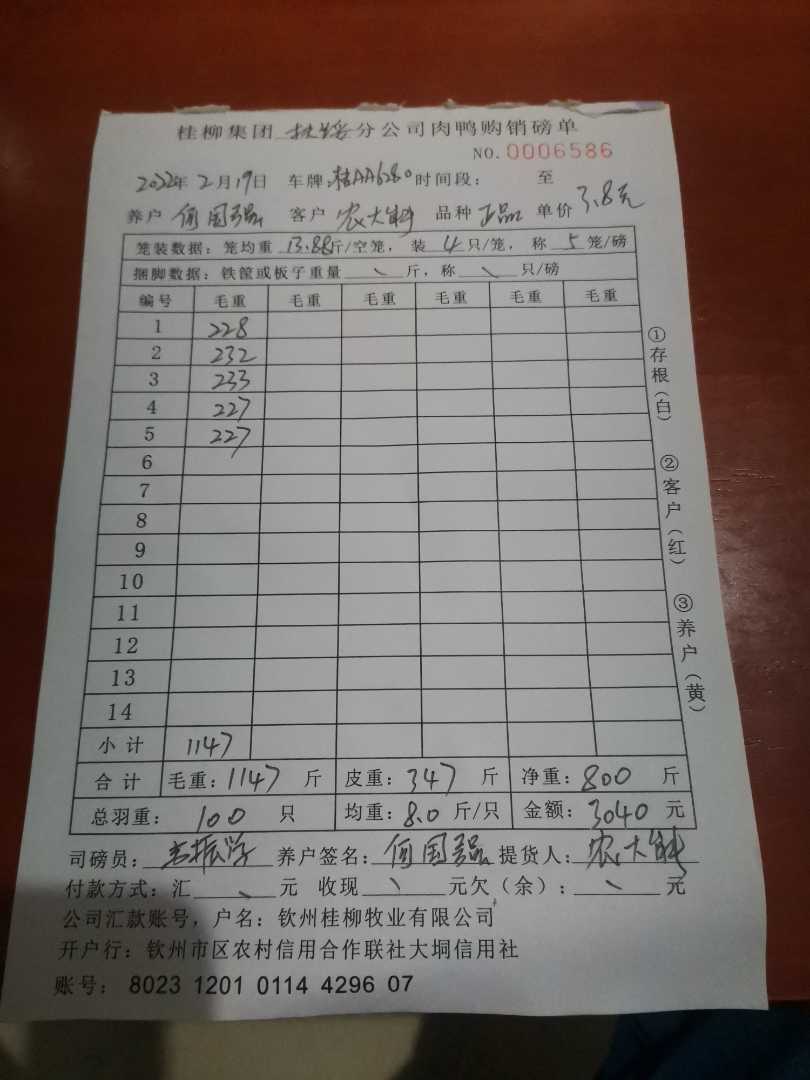 桂柳集团 扶绥 分公司肉鸭购销磅单
NO. 0006586
2022年 2月19日 车牌:桂AA6280 时间段: 至
养户 何国强 客户 农大科 品种 正品 单价 3.8元
笼装数据:笼均重 13.88斤/空笼, 装 4 只/笼, 称 5 笼/磅
捆脚数据:铁筐或板子重量 \ 斤,称 \ 只/磅
编号 毛重 毛重 毛重 毛重 毛重 毛重
1 228
2 232
3 233
4 227
5 227
6
7
8
9
10
11
12
13
14
小计 1147
合计 毛重:1147 斤 皮重:347 斤 净重:800 斤
总羽重: 100 只 均重:8.0 斤/只 金额:3040 元
司磅员: 振 养户签名:何国强 提货人:农大科
付款方式:汇 \ 元 收现 \ 元欠(余): \ 元
公司汇款账号,户名:钦州桂柳牧业有限公司
开户行:钦州市区农村信用合作联社大垌信用社
账号: 8023 1201 0114 4296 07
①存根(白)
②客户(红)
③养户(黄)